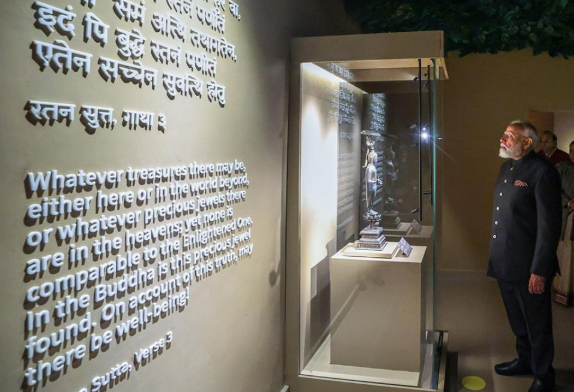 समं अत्थि तथागतेन,
इदं पि बुद्धे रतनं पणीतं
एतेन सच्चेन सुवत्थि होतु
रतन सुत्त, गाथा ३
Whatever treasures there may be,
either here or in the world beyond,
or whatever precious jewels there
are in the heavens; yet none is
comparable to the Enlightened One.
In the Buddha is this precious jewel
found. On account of this truth, may
there be well-being!
Sutta; Verse 3